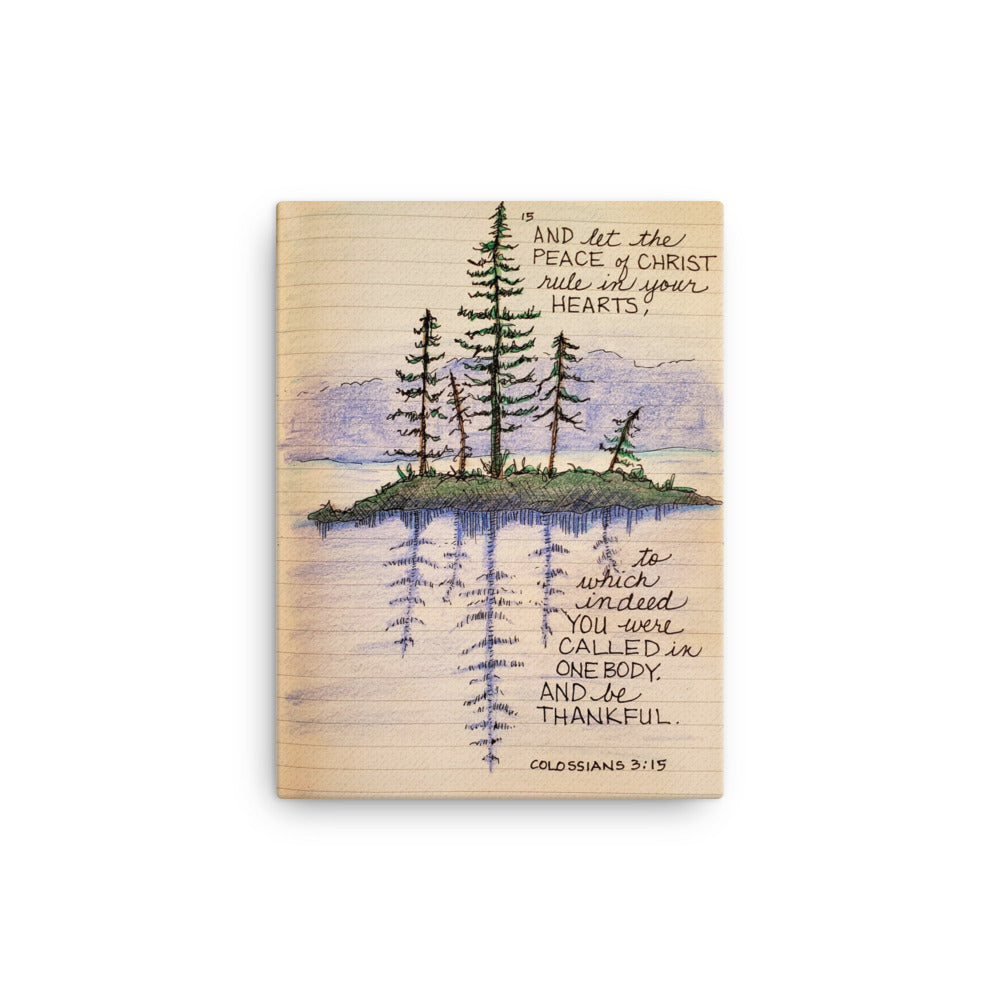 15
AND let the
PEACE of CHRIST
rule in your
HEARTS,
to
which
indeed
YOU were
CALLED in
ONE BODY.
AND be
THANKFUL.
COLOSSIANS 3:15